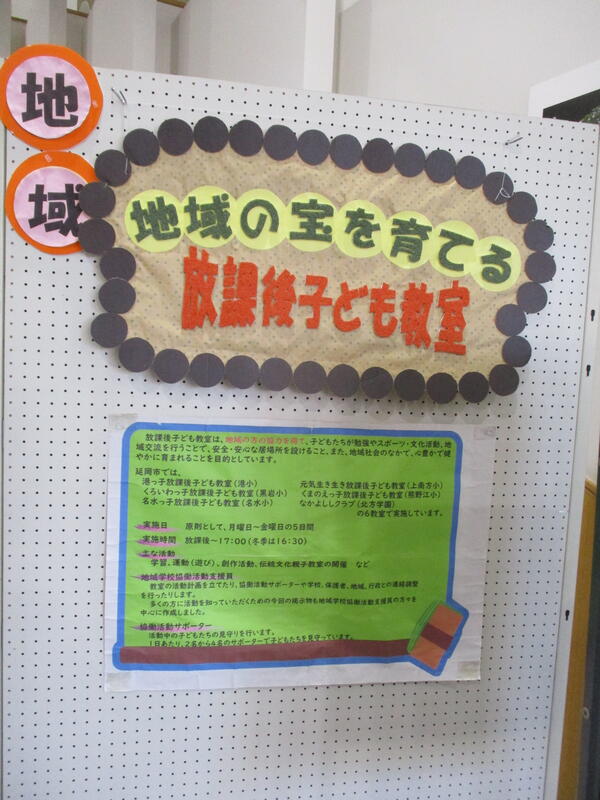 地
域
地域の宝を育てる
放課後子ども教室
放課後子ども教室は、地域の方の協力を得て、子どもたちが勉強やスポーツ・文化活動、地
域交流を行うことで、安全・安心な居場所を設けること、また、地域社会のなかで、心豊かで健
やかに育まれることを目的としています。
延岡市では、
港っ子放課後子ども教室（港小）　元気生き生き放課後子ども教室（上南方小）
くろいわっ子放課後子ども教室（黒岩小）　くまのえっ子放課後子ども教室（熊野江小）
名水っ子放課後子ども教室（名水小）　なかよしクラブ（北方学園）
の6教室で実施しています。
実施日　原則として、月曜日～金曜日の5日間
実施時間　放課後～17：00（冬季は16：30）
主な活動
学習、運動（遊び）、創作活動、伝統文化親子教室の開催　など
地域学校協働活動支援員
教室の活動計画を立てたり、協働活動サポーターや学校、保護者、地域、行政との連絡調整
を行ったりします。
多くの方に活動を知っていただくための今回の掲示物も地域学校協働活動支援員の方々を
中心に作成しました。
協働活動サポーター
活動中の子どもたちの見守りを行います。
1日あたり、2名から4名のサポーターで子どもたちを見守っています。